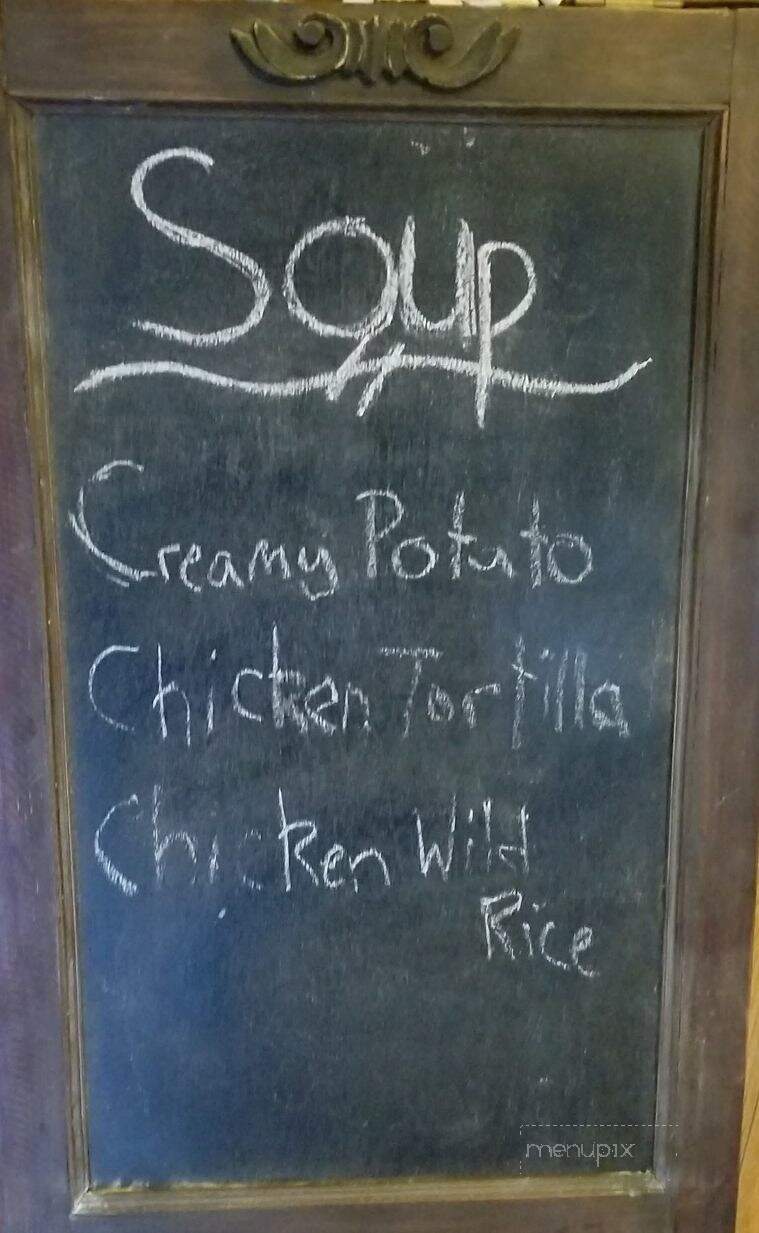 Soup
Creamy Potato
Chicken Tortilla
Chicken Wild
Rice
menupix